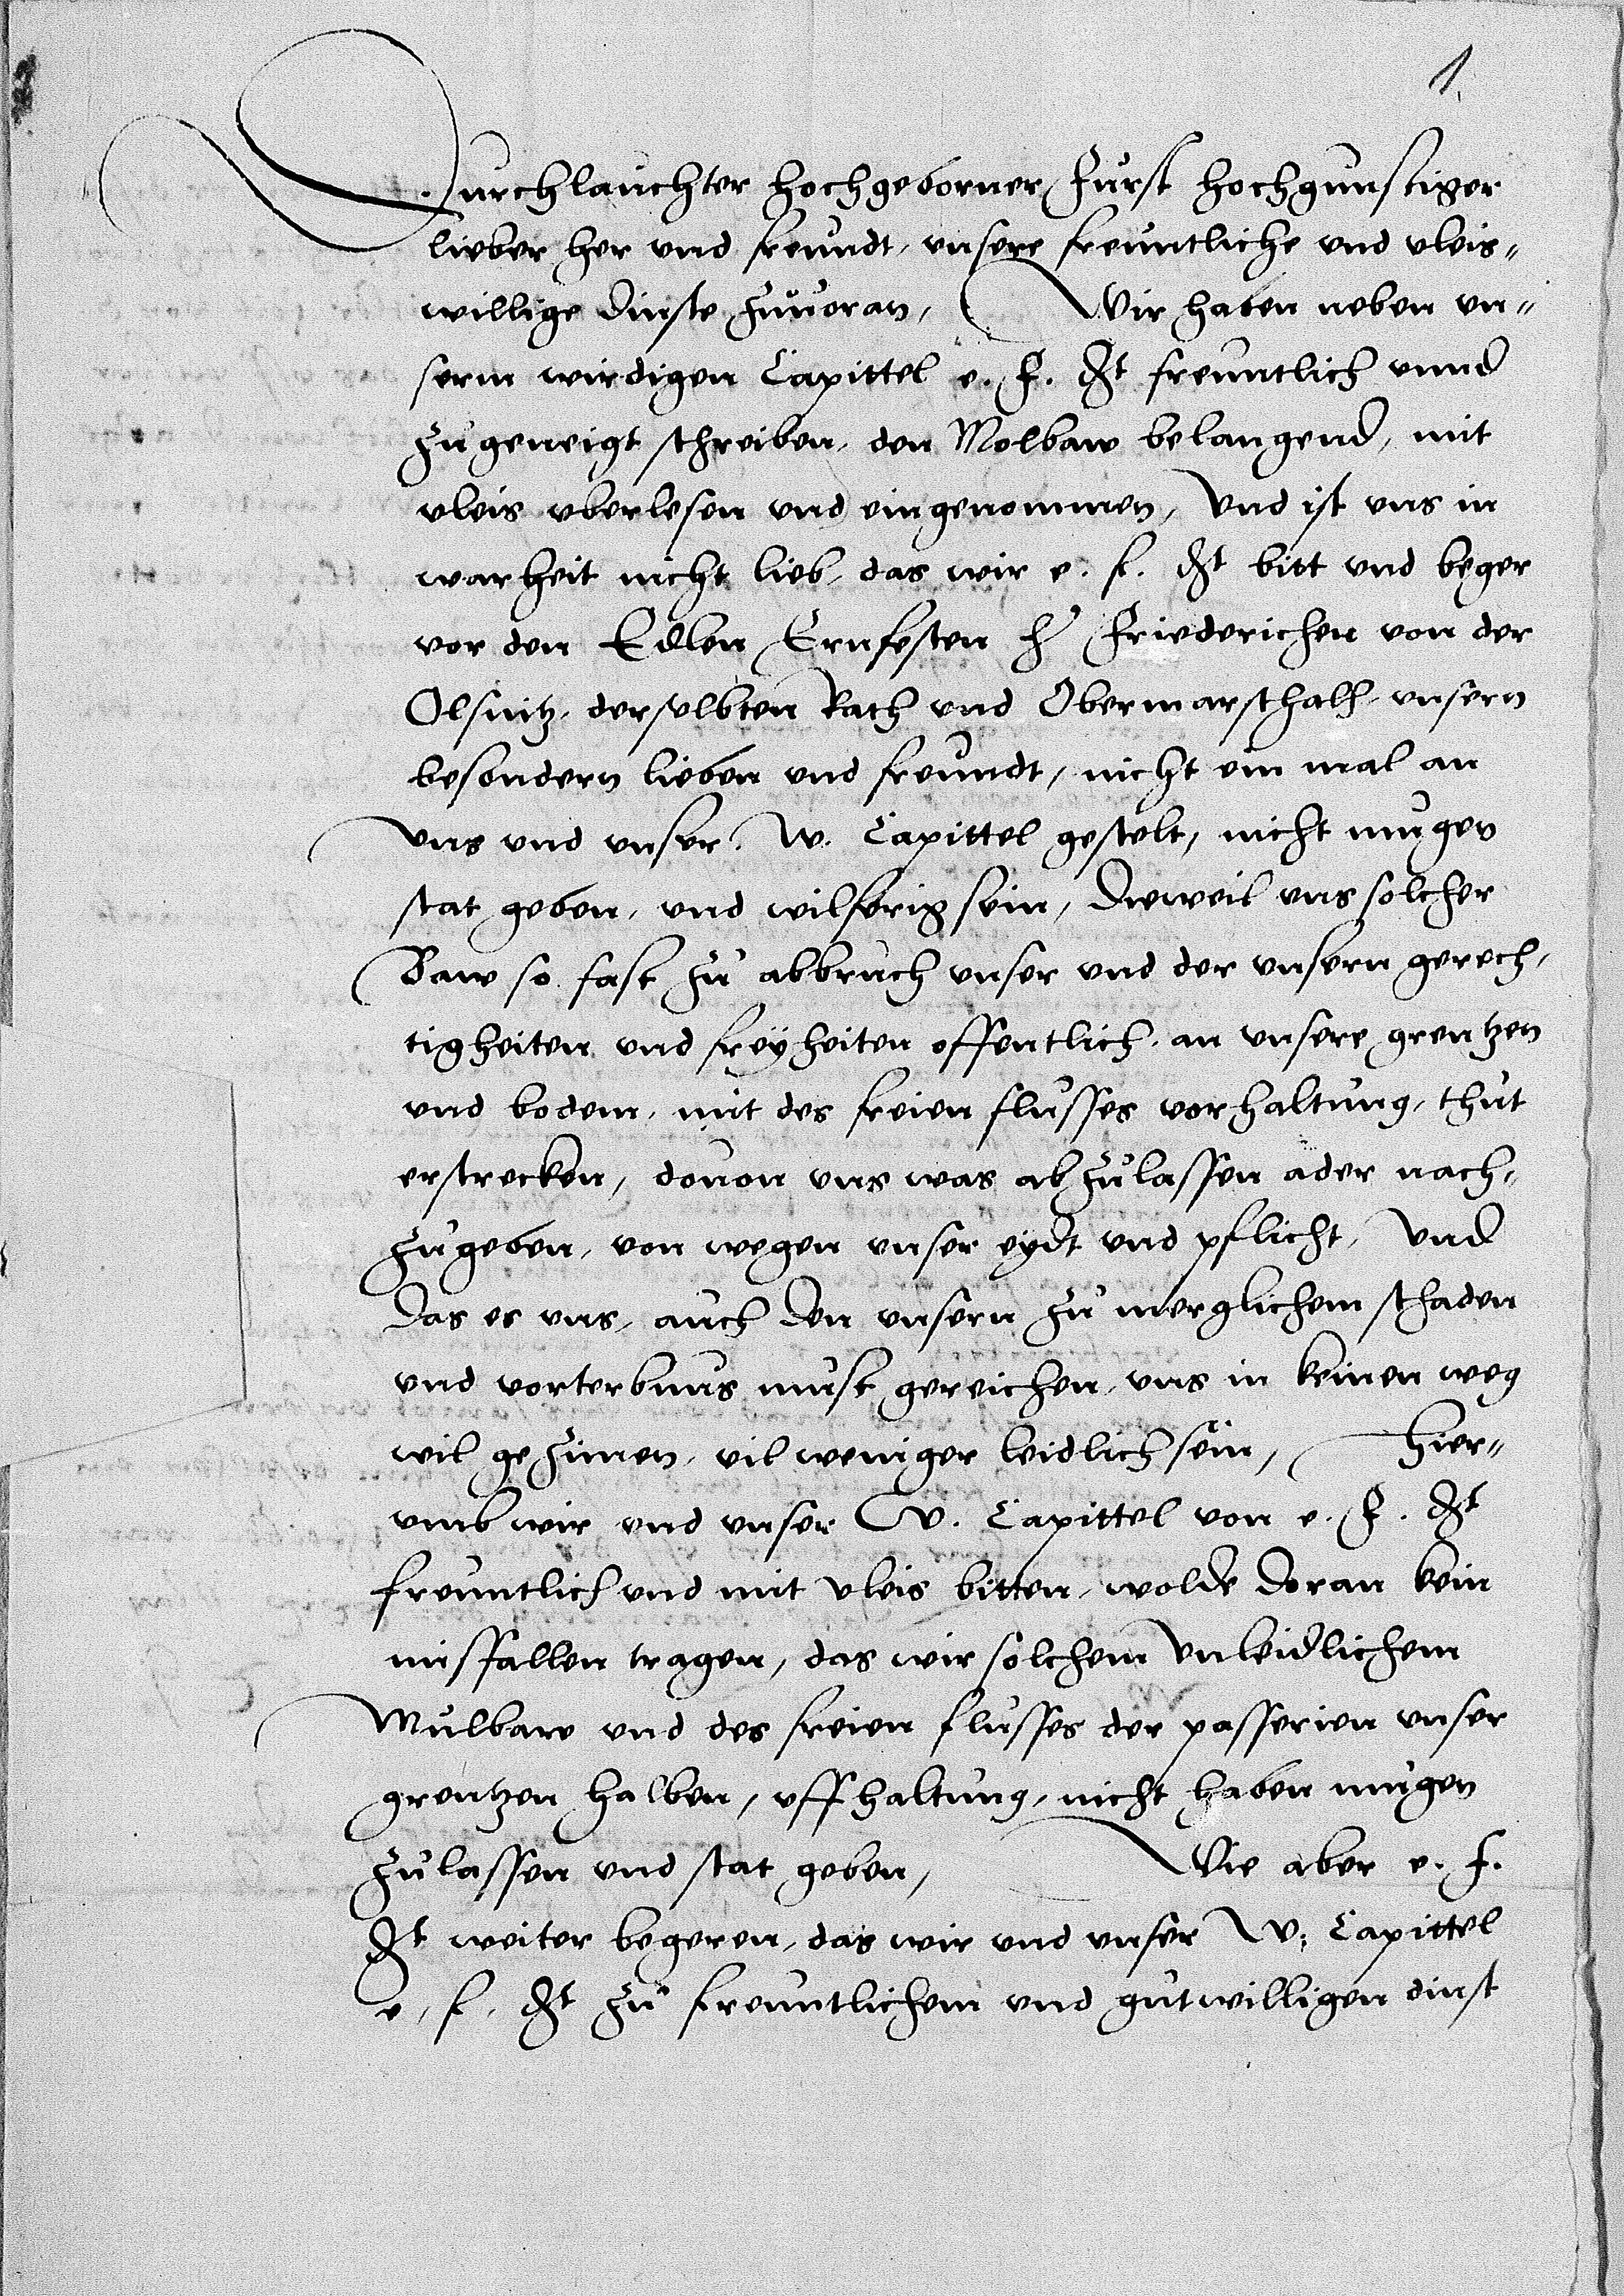 1
Durchlauchter hochgeborner Furst hochgunstiger
lieber her vnd freundt, vnsere freuntliche vnd vleis-
willige dinste zuuoran, Wir haben neben vn-
serm wirdigen Capittel e. F. Dt freuntlich vnnd
zugeneigt schreiben, den Molbaw belangend, mit
vleis vberlesen vnd eingenommen, Vnd ist vns in
warheit nicht lieb, das wir e. f. Dt bitt vnd beger
vor den Edlen Ernfesten h Friederichen von der
Olsnitz, derselbten Rath vnd Obermarschalh, vnsern
besondern lieben vnd freundt, nicht ein mal an
vns vnd vnser W. Capittel gestelt, nicht mugen
stat geben, vnd wilferig sein, Dieweil vns solcher
Baw so fast zu abbruch vnser vnd der vnsern gerech-
tigheiten vnd freyheiten offentlich, an vnsere grentzen
vnd bodem, mit des freien flusses vorhaltung, thut
erstrecken, douon vns was abzulassen ader nach-
zugeben, von wegen vnser eydt vnd pflicht, Vnd
das es vns, auch den vnsern zu merglichem schaden
vnd vorterbnus must gereichen, vns in keinen weg
wil gezimen, vil weniger leidlich sein, Hier-
vmb wir vnd vnser W. Capittel von e. F. Dt
freuntlich vnd mit vleis bitten, wolde doran kein
misfallen tragen, das wir solchem vnleidlichem
Mulbaw vnd des freien flusses der passerien vnser
grentzen halben, vffhaltung, nicht haben mugen
zulassen vnd stat geben, Wie aber e. f.
Dt weiter begeren, das wir vnd vnser W. Capittel
e. f. Dt zu freuntlichem vnd gutwilligen dinst